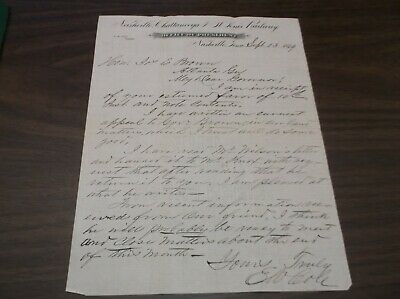 Nashville, Chattanooga & St Louis Railway
OFFICE OF PRESIDENT
Nashville, Tenn Sept. 13. 1879
Hon. Jos E Brown
Atlanta Ga
My Dear Governor:
I am in receipt
of your esteemed favor of 10th
inst and note Contents.
I have written an earnest
appeal to Gov. Brown, on
matters, which I think will do some
good.
I have read Mr Wilson's letter
and handed it to Mr Knox with
request that after reading that he
return it to you. I am pleased at
what he writes
From recent information
received from our friend, I think
he will probably be ready to meet
and Close matters about the end
of this month-
Yours Truly
E W Cole